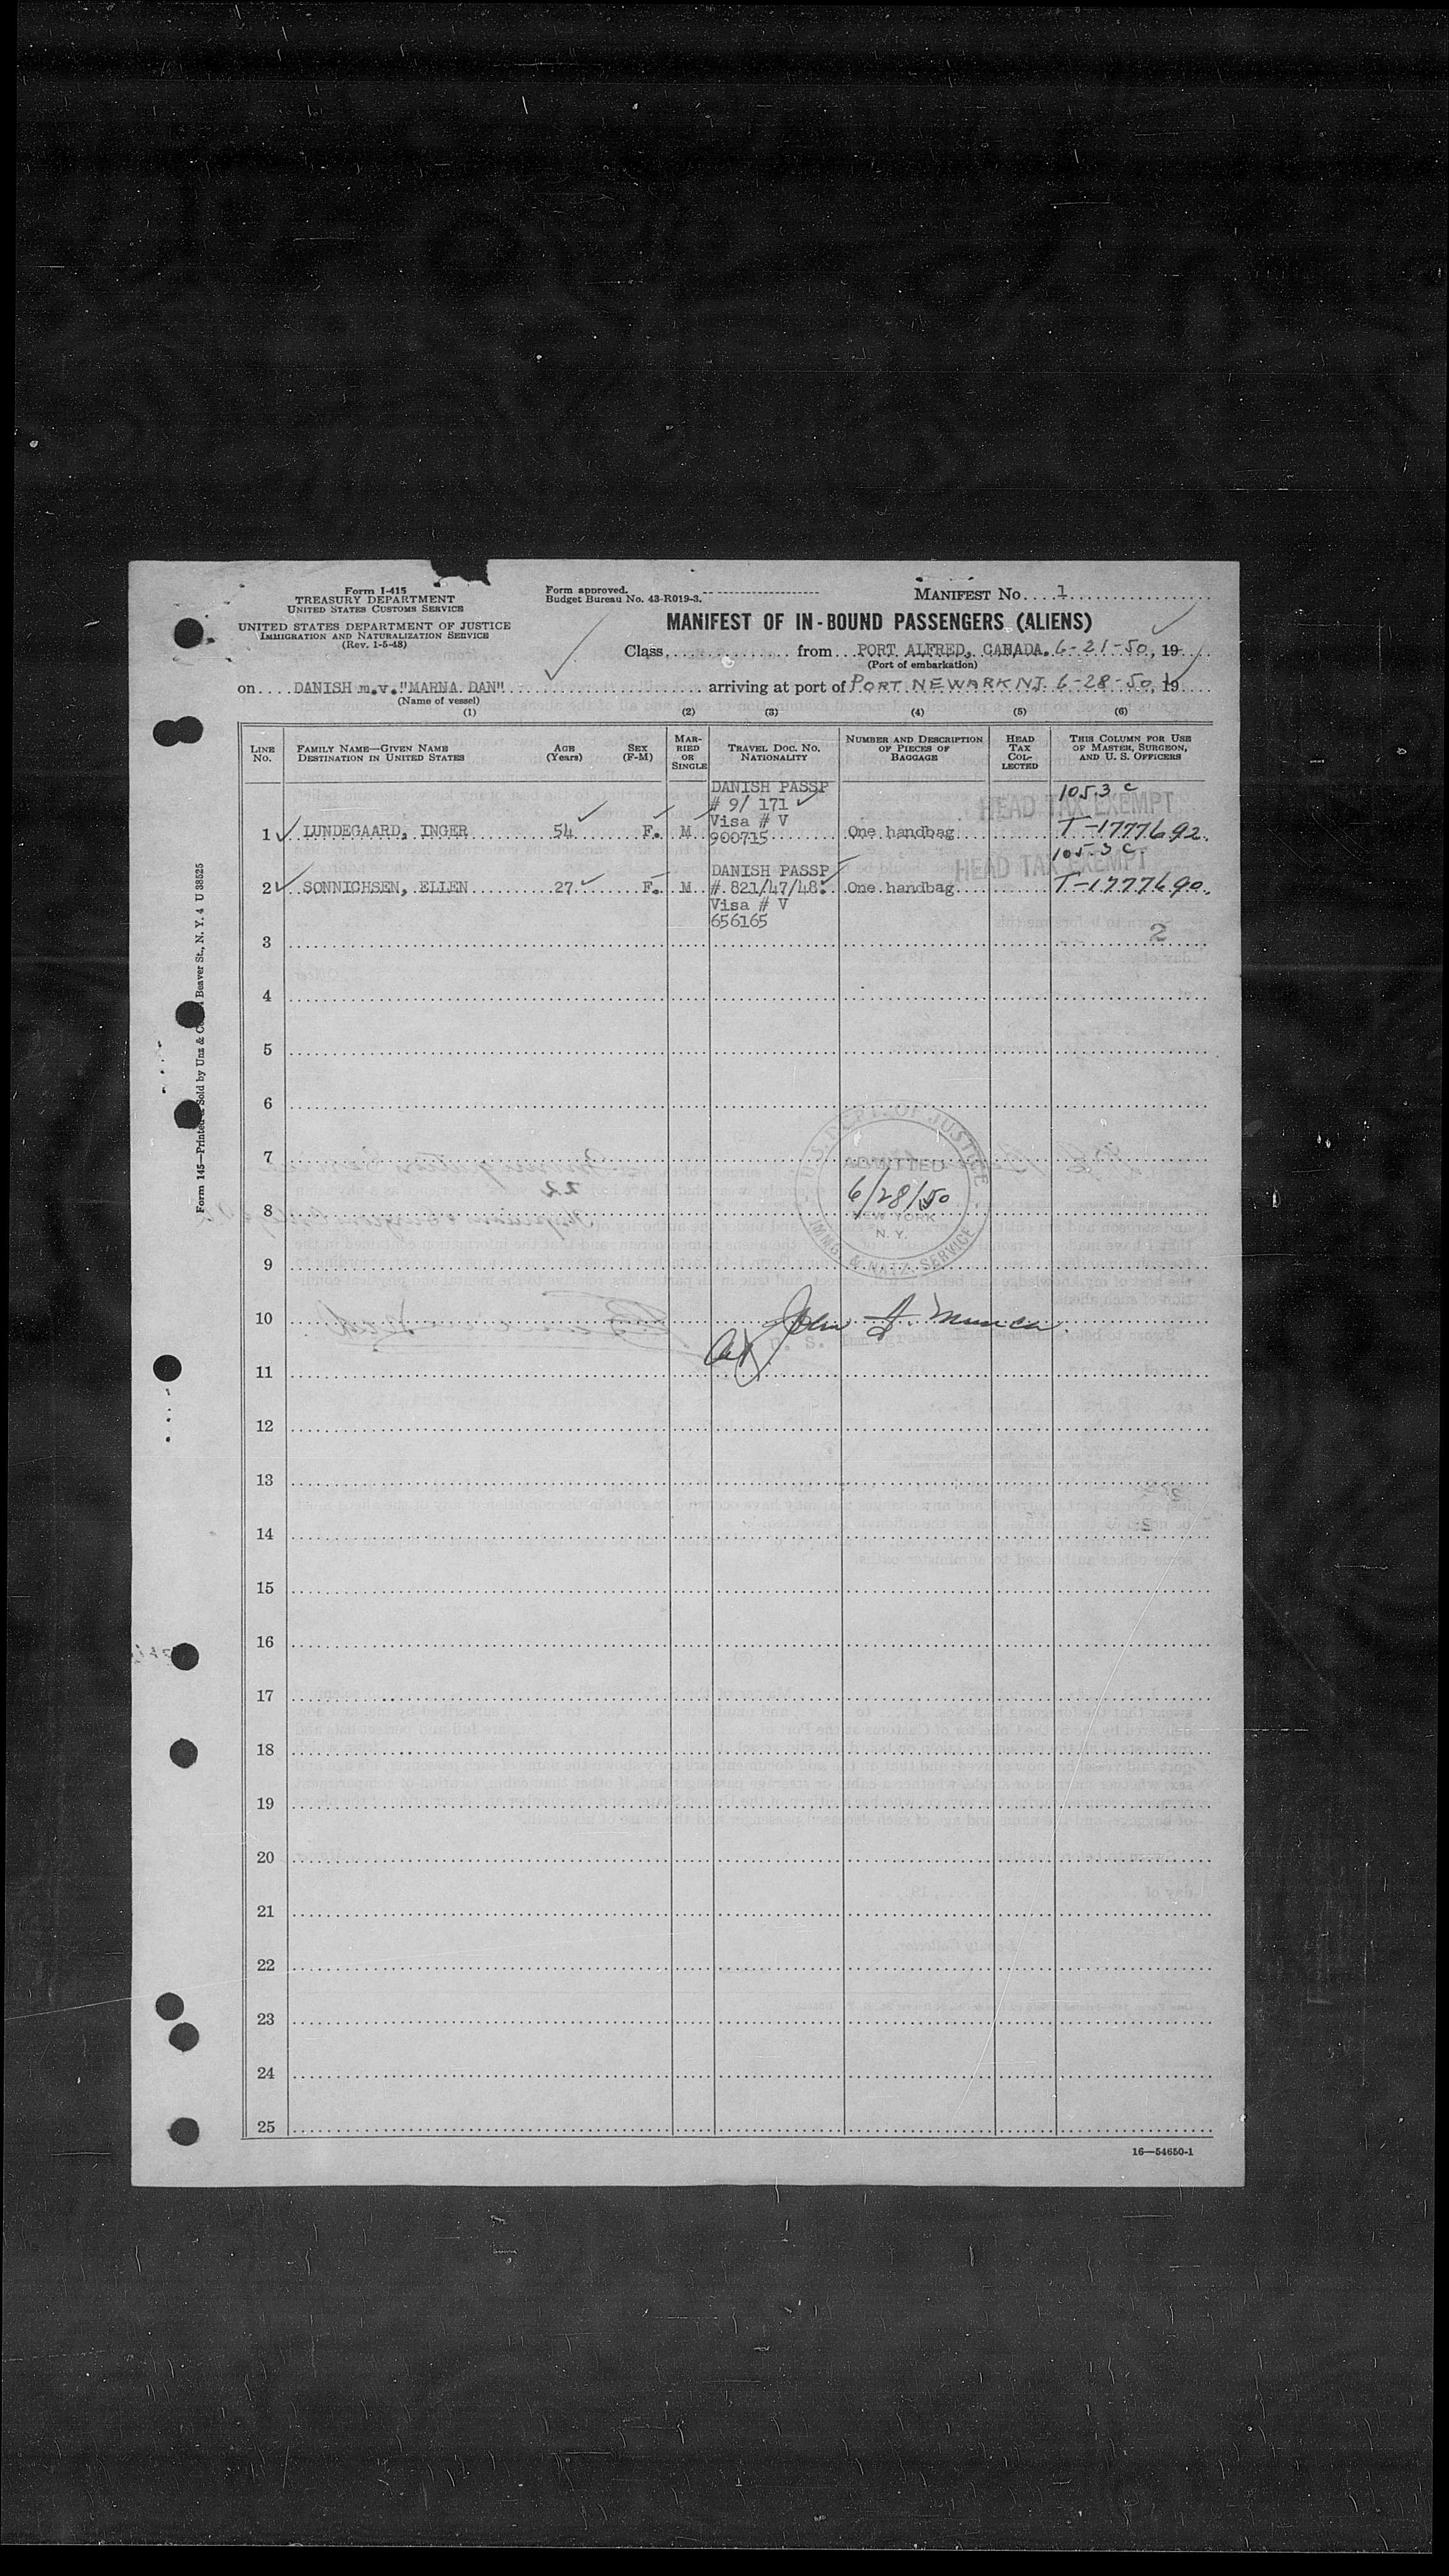 Form I-415
TREASURY DEPARTMENT
UNITED STATES CUSTOMS SERVICE
UNITED STATES DEPARTMENT OF JUSTICE
IMMIGRATION AND NATURALIZATION SERVICE
(Rev. 1-5-48)
Form approved.
Budget Bureau No. 43-R019-3.
MANIFEST No. 1
MANIFEST OF IN-BOUND PASSENGERS (ALIENS)
Class from PORT ALFRED, CANADA. 6-21-50, 19
(Port of embarkation)
on DANISH m.v."MARNA DAN" arriving at port of PORT NEWARK NJ. 6-28-50, 19
(Name of vessel)
(1) (2) (3) (4) (5) (6)
LINE No. FAMILY NAME—GIVEN NAME DESTINATION IN UNITED STATES AGE (Years) SEX (F-M) MARRIED OR SINGLE TRAVEL DOC. NO. NATIONALITY NUMBER AND DESCRIPTION OF PIECES OF BAGGAGE HEAD TAX COLLECTED THIS COLUMN FOR USE OF MASTER, SURGEON, AND U. S. OFFICERS
DANISH PASSP 105.3 c
# 9/ 171 HEAD TAX EXEMPT
Visa # V
1 LUNDEGAARD, INGER 54 F. M 900715 One handbag T-1777692.
105.3 c.
DANISH PASSP HEAD TAX EXEMPT
2 SONNICHSEN, ELLEN 27 F. M # 821/47/48. One handbag T-1777690.
Visa # V
656165
2
3
4
5
6
7
8
9
10
11
12
13
14
15
16
17
18
19
20
21
22
23
24
25
U. S. DEPT. OF JUSTICE
ADMITTED
6/28/50
NEW YORK
N. Y.
IMMG. & NATZ. SERVICE
John
U. S.
16—54650-1
Form 145—Printed & Sold by Unz & Co., Beaver St., N. Y. 4 U 38525